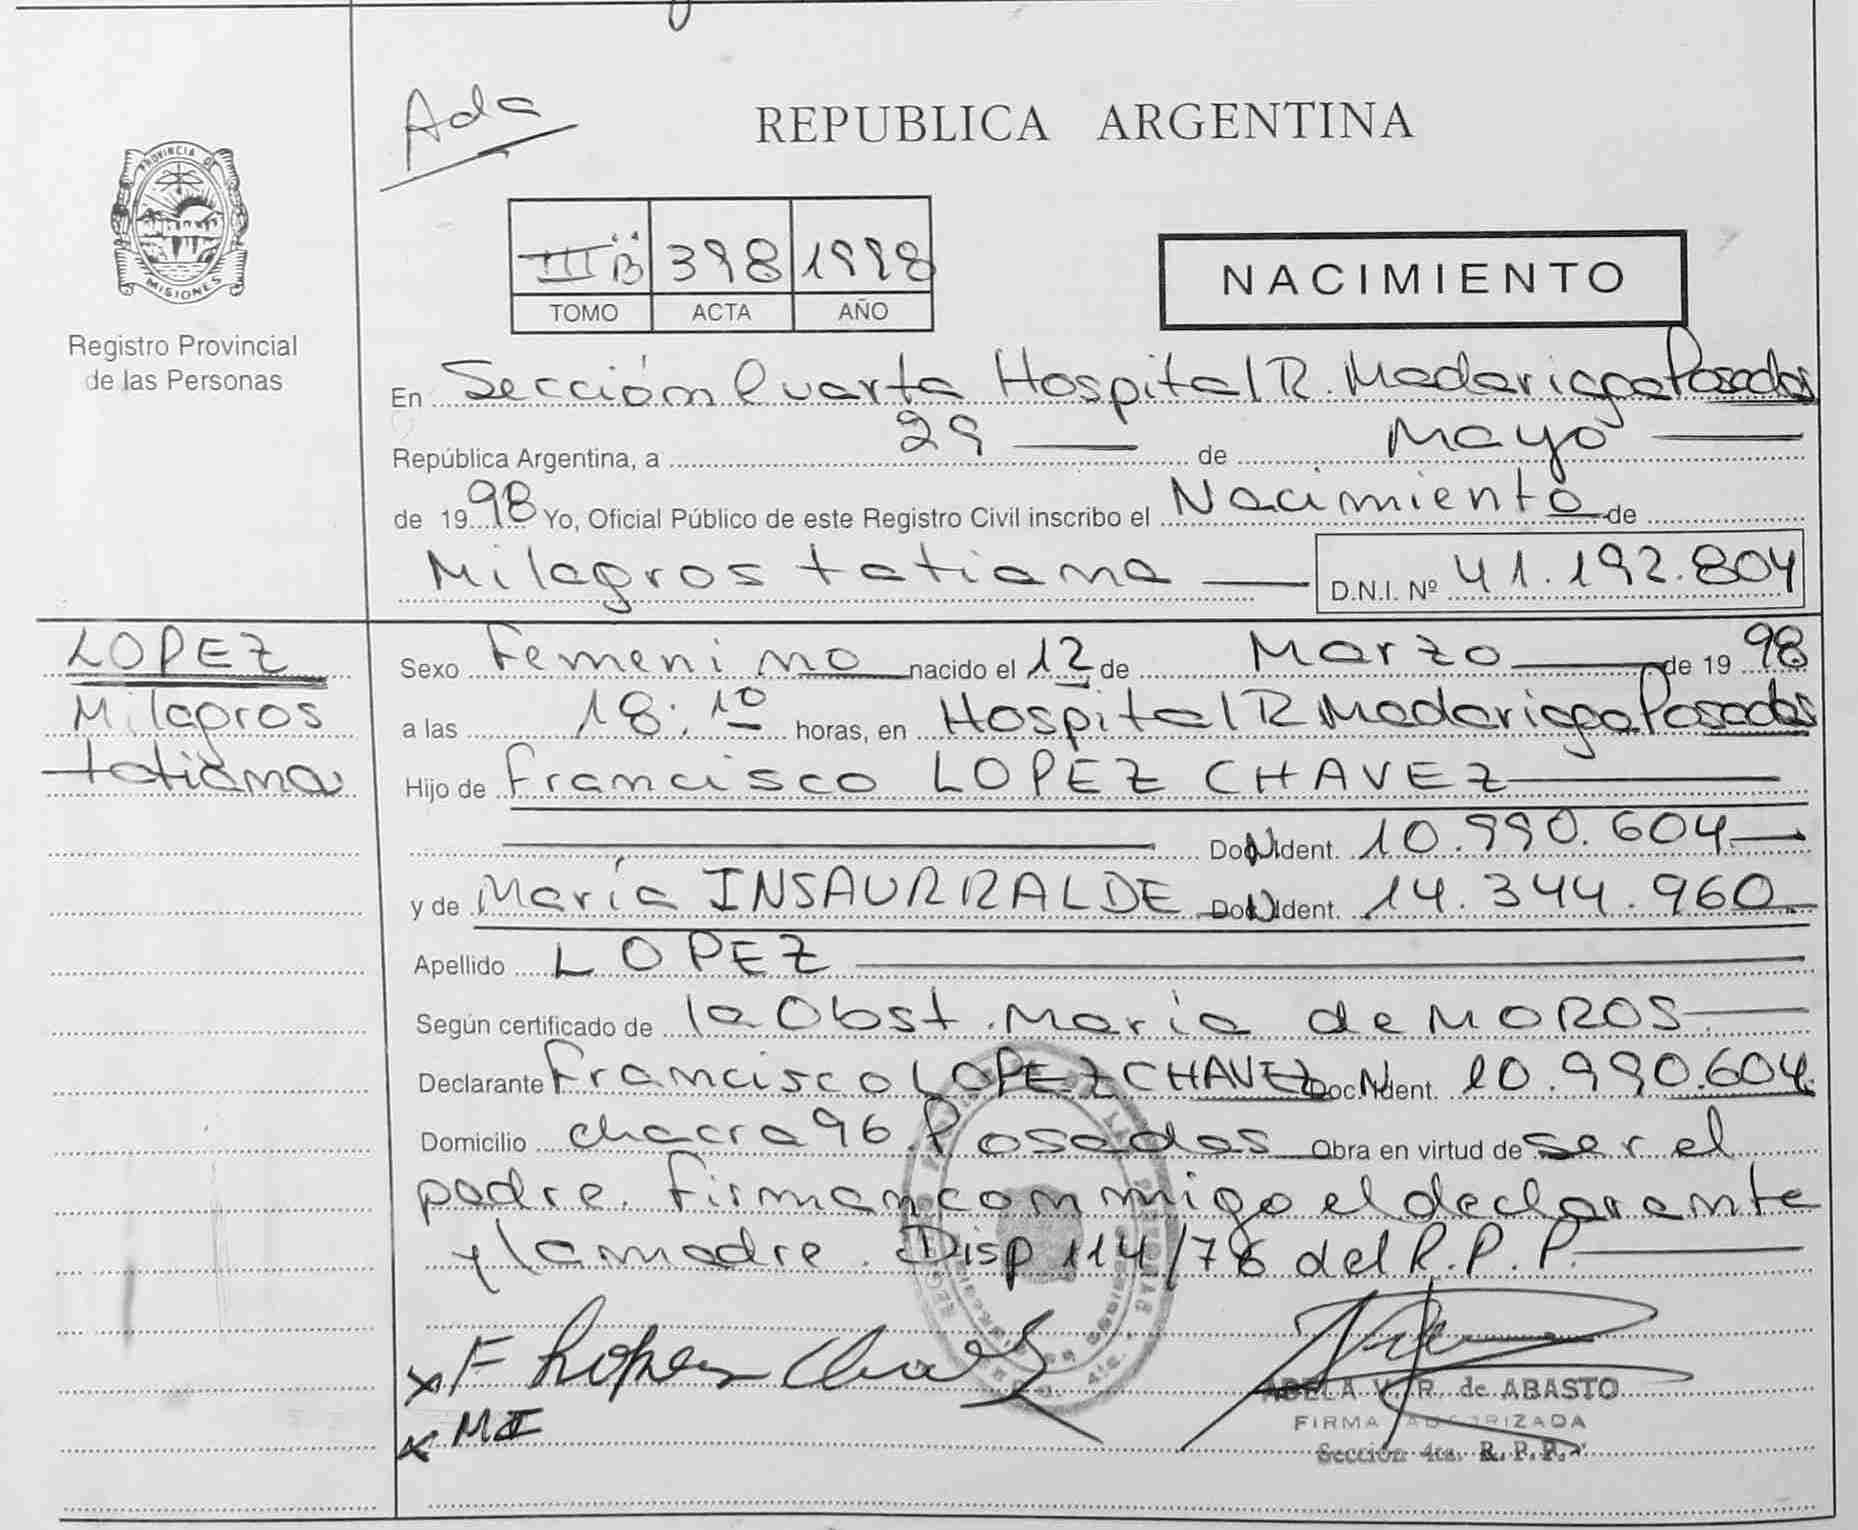 Ada
REPUBLICA ARGENTINA
PROVINCIA DE
MISIONES
Registro Provincial
de las Personas
III B 398 1998
TOMO ACTA AÑO
NACIMIENTO
En Sección Cuarta Hospital R. Madariaga Posadas
República Argentina, a 29 de Mayo
de 1998 Yo, Oficial Público de este Registro Civil inscribo el Nacimiento de
Milagros tatiana D.N.I. Nº 41.192.804
LOPEZ
Milagros
tatiana
Sexo Femenino nacido el 12 de Marzo de 1998
a las 18:10 horas, en Hospital R Madariaga Posadas
Hijo de Francisco LOPEZ CHAVEZ
Doc. N Ident. 10.990.604
y de María INSAURRALDE Doc. N Ident. 14.344.960
Apellido LOPEZ
Según certificado de la Obst. María de MOROS
Declarante Francisco LOPEZ CHAVEZ Doc. N Ident. 10.990.604
Domicilio chacra 96. Posadas Obra en virtud de ser el
padre. Firman conmigo el declarante
y la madre. Disp 114/76 del R.P.P.
x F Lopez Chavez
x MI
ABELA V. R. de ABASTO
FIRMA AUTORIZADA
Sección 4ta. R.P.P.